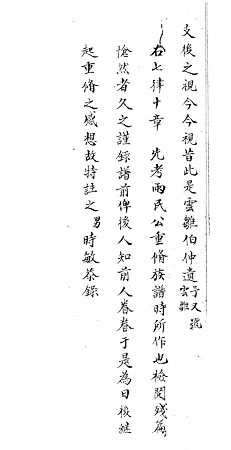 文後之視今今視昔此是雲雛伯仲遺
子又號
雲雛
右七律十章 先考兩民公重脩族譜時所作也檢閱殘篇
愴然者久之謹錄譜前俾後人知前人眷眷于是為日後繼
起重脩之感想故特註之 男時敏恭錄